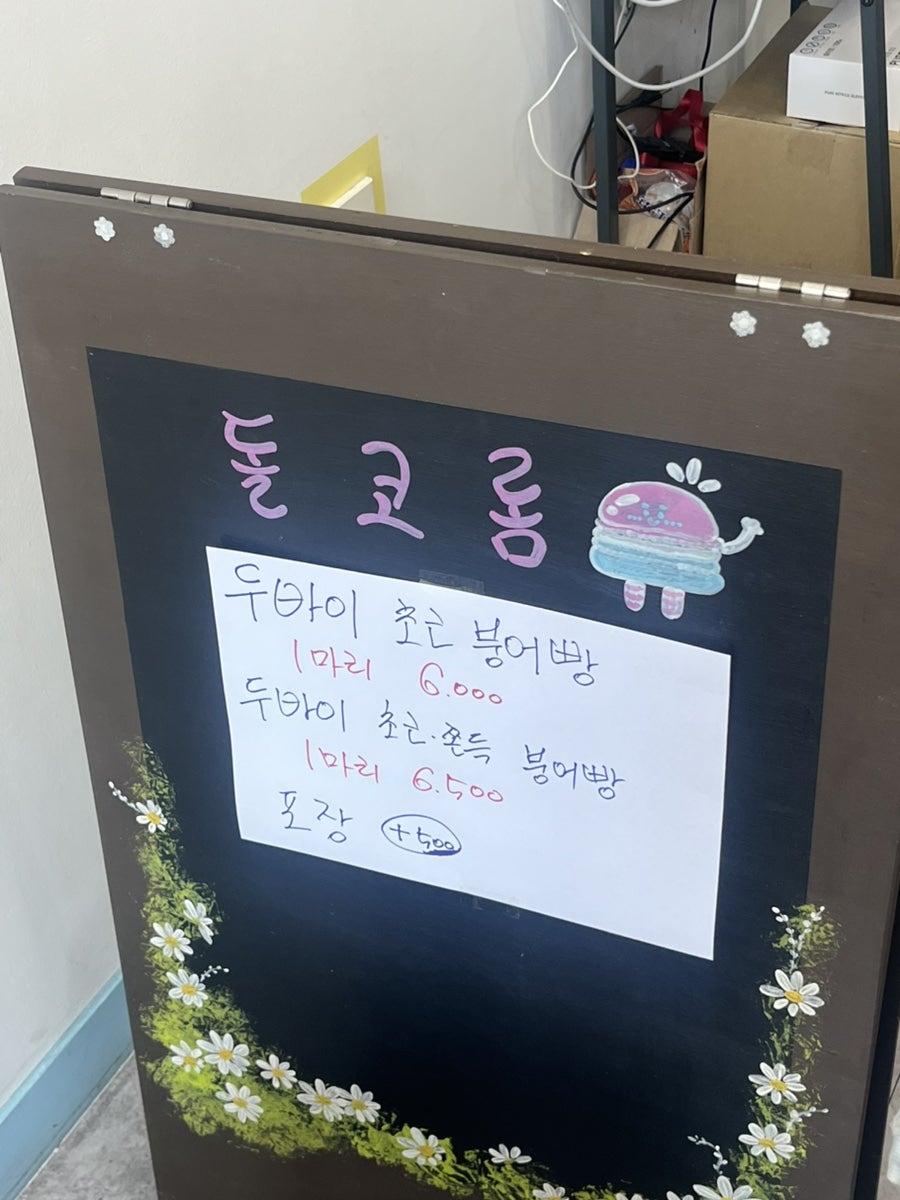 돌코롬
두바이 초코 붕어빵
1마리 6.000
두바이 초코.쫀득 붕어빵
1마리 6.500
포장 +500